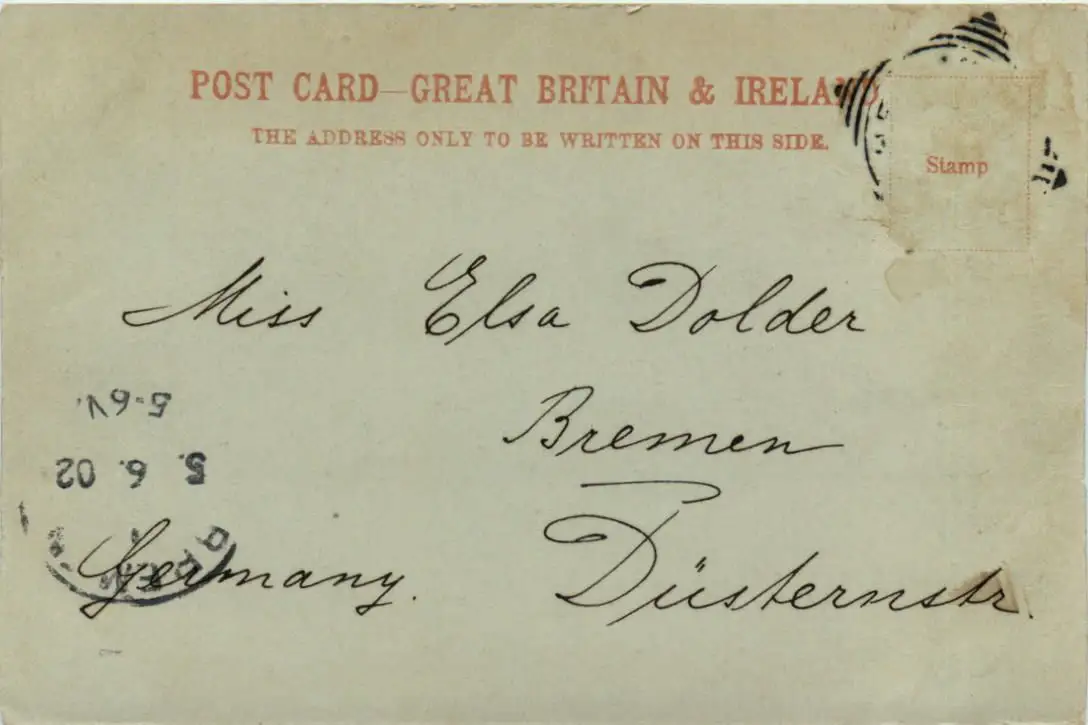 POST CARD—GREAT BRITAIN & IRELAND
THE ADDRESS ONLY TO BE WRITTEN ON THIS SIDE.
Stamp
Miss Elsa Dolder
Bremen
Düsternstr.
Germany.
5-6V.
5. 6. 02